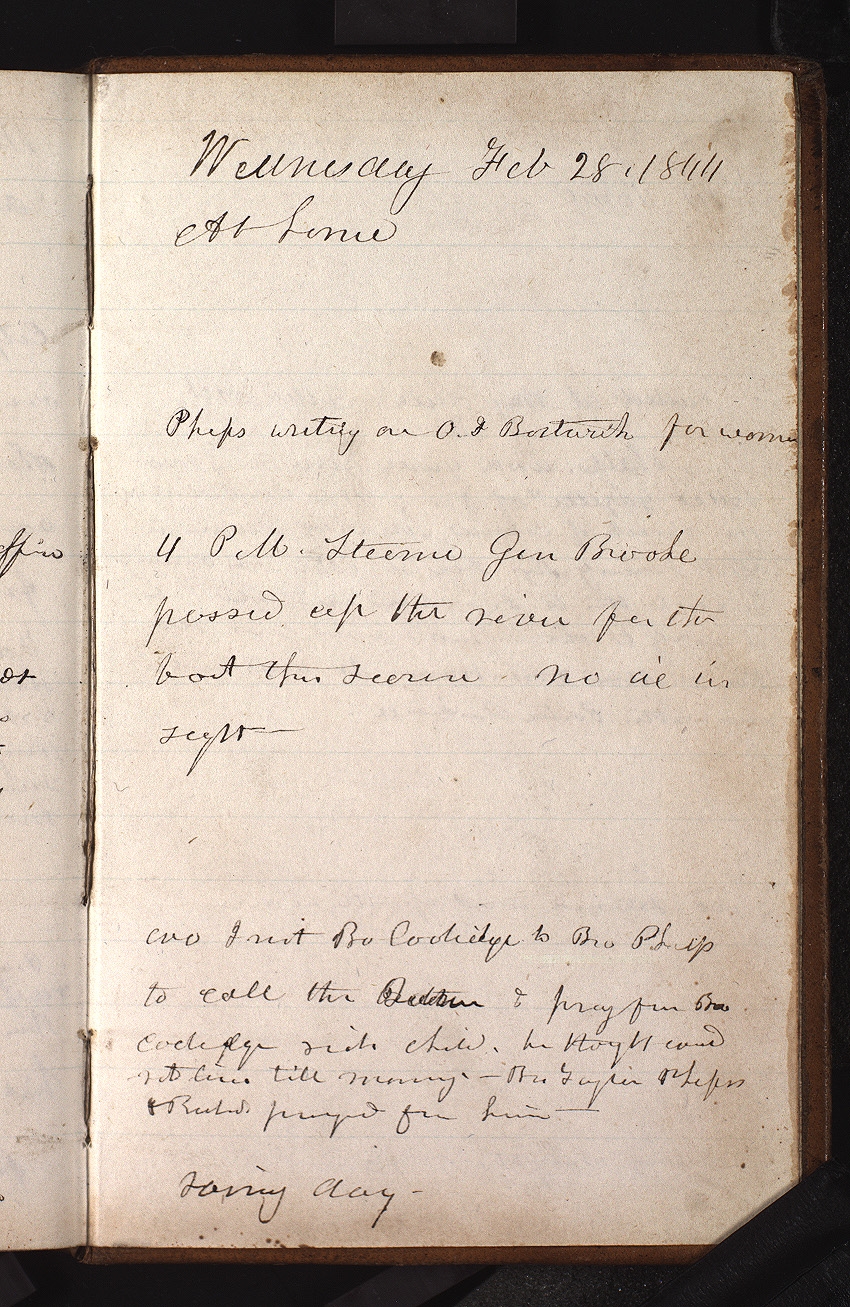 Wednesday Feb 28. 1844
At home
Phelps writing on O. F Bostwick for women
4 P.M. Steeme Gen Brooke
passed up the river for the
boat this season. no ice in
sight—
eve I sent Bro Coolidge to Bro Phelps
to call the & pray for Bro
Coolidge sick child. he thoght could
not live till morning — Bro Taylor Phelps
& prayed for him —
rainy day -